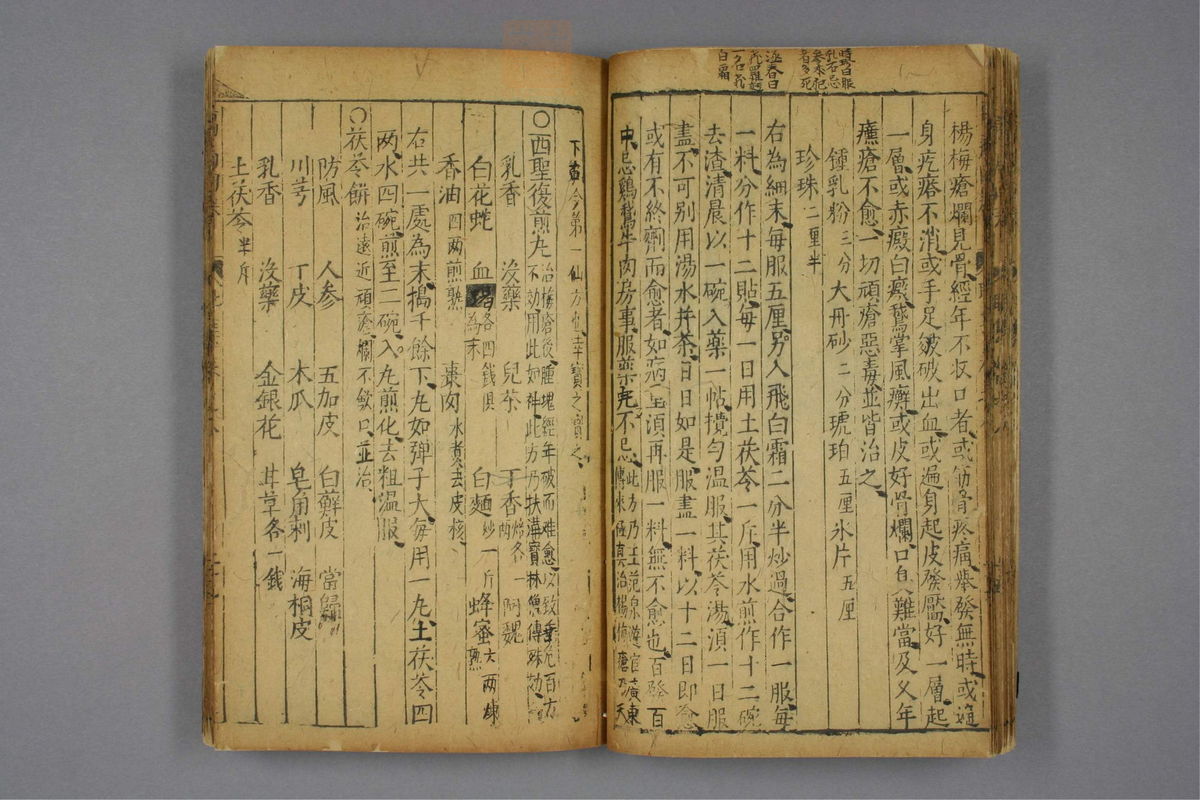 時珍曰服
乳石忌
參朮犯
者多死
一名
白霜
楊梅瘡爛見骨經年不収口者或筋骨疼痛舉發無時或遍
身疙瘩不消或手足皴破出血或遍身起皮發靨好一層起
一層或赤癜白癜鵝掌風癬或皮好骨爛口臭難當及父年
癰瘡不愈一切頑瘡惡毒並皆治之
鍾乳粉三分大丹砂二分琥珀五厘氷片五厘
珍珠二厘半
右為細末每服五厘另入飛白霜二分半炒過合作一服每
一料分作十二貼每一日用土茯苓一斤用水煎作十二碗
去渣清晨以一碗入藥一帖攪勻温服其茯苓湯湏一日服
盡不可别用湯水并茶日日如是服盡一料以十二日即愈
或有不終劑而愈者如病重湏再服一料無不愈也百發百
中忌鷄鵝牛肉房事服藥完不忌此方乃王范泉遊官廣東
傳來極真治楊梅瘡乃天
下古今第一仙方也幸寶之寶之
○西聖復煎丸治楊梅瘡後腫塊經年破而难愈以致垂危百方
不効用此如神此方乃扶溝寳林僧傳殊効
乳香 沒藥 兒茶 丁香焙各一兩 阿魏
白花蛇 血竭各四錢俱為末 白麵炒一斤 蜂蜜六两煉熟
香油四两煎熟 棗肉水煮去皮核
右共一處為末搗千餘下丸如弾子大每用一丸土茯苓四
两水四碗煎至二碗入丸煎化去粗温服
○茯苓餅治遠近頑瘡爛不斂口並治
防風 人參 五加皮 白蘚皮 當歸
川芎 丁皮 木瓜 皂角刺 海桐皮
乳香 沒藥 金銀花 甘草各一錢
土茯苓半斤